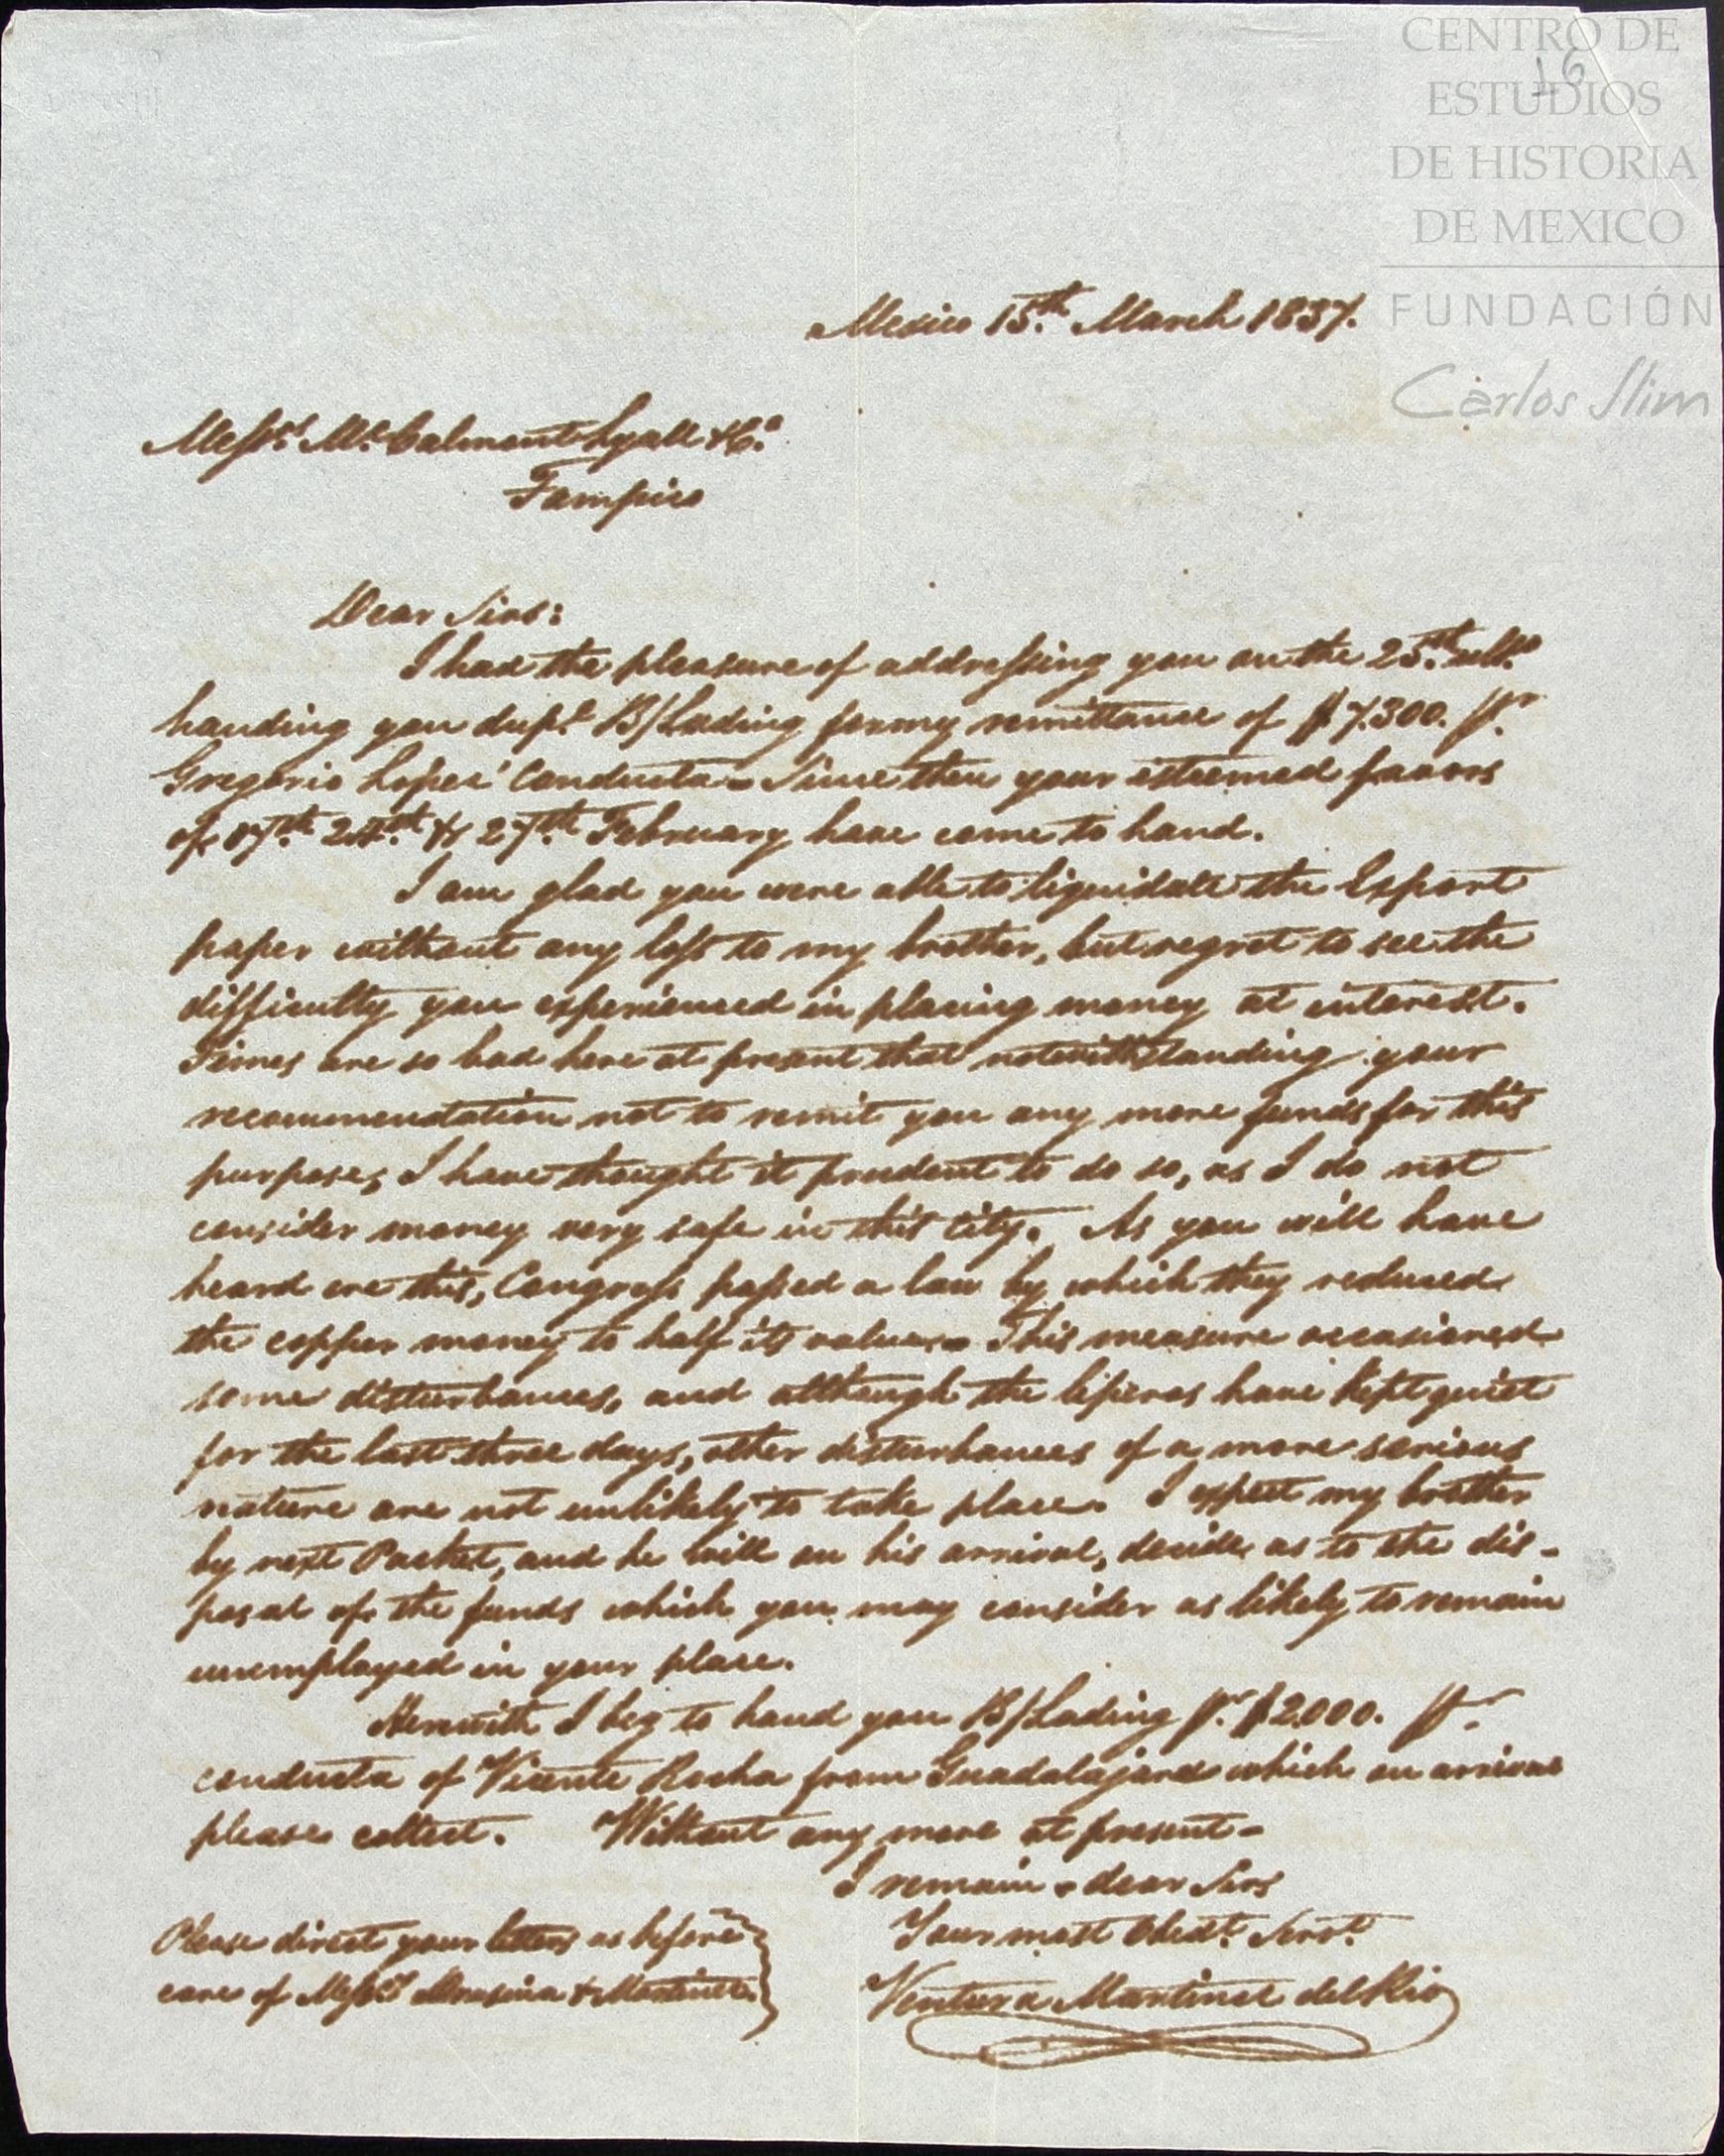 CENTRO DE
16
ESTUDIOS
DE HISTORIA
DE MEXICO
FUNDACIÓN
Carlos Slim
Mexico 15th. March 1837.
Messrs. Mc.Calmont Lyall & Co.
Tampico
Dear Sirs:
I had the pleasure of addressing you on the 25th. ulto.
handing you dupt. B/Lading for my remittance of $7.300. pr.
Gregorio Lopez' Conducta - Since then your esteemed favors
of 17th. 24st. & 27th. February have come to hand.
I am glad you were able to liquidate the Export
paper without any loss to my brother, but regret to see the
difficulty you experienced in placing money at interest.
Times are so bad here at present that notwithstanding your
recommendation not to remit you any more funds for this
purpose, I have thought it prudent to do so, as I do not
consider money very safe in this City. As you will have
heard ere this, Congress passed a law by which they reduced
the copper money to half its value. - This measure occasioned
some disturbances, and although the leperos have kept quiet
for the last three days, other disturbances of a more serious
nature are not unlikely to take place. I expect my brother
by next Packet, and he will on his arrival, decide as to the dis-
posal of the funds which you may consider as likely to remain
unemployed in your place.
Herewith I beg to hand you B/Lading pr. $2.000. pr.
conducta of Vicente Rocha from Guadalajara which on arrival
please collect. Without any more at present -
I remain - dear Sirs
Your most Obedt. Servt.
Ventura Martinez del Rio
Please direct your letters as before
care of Messrs. &